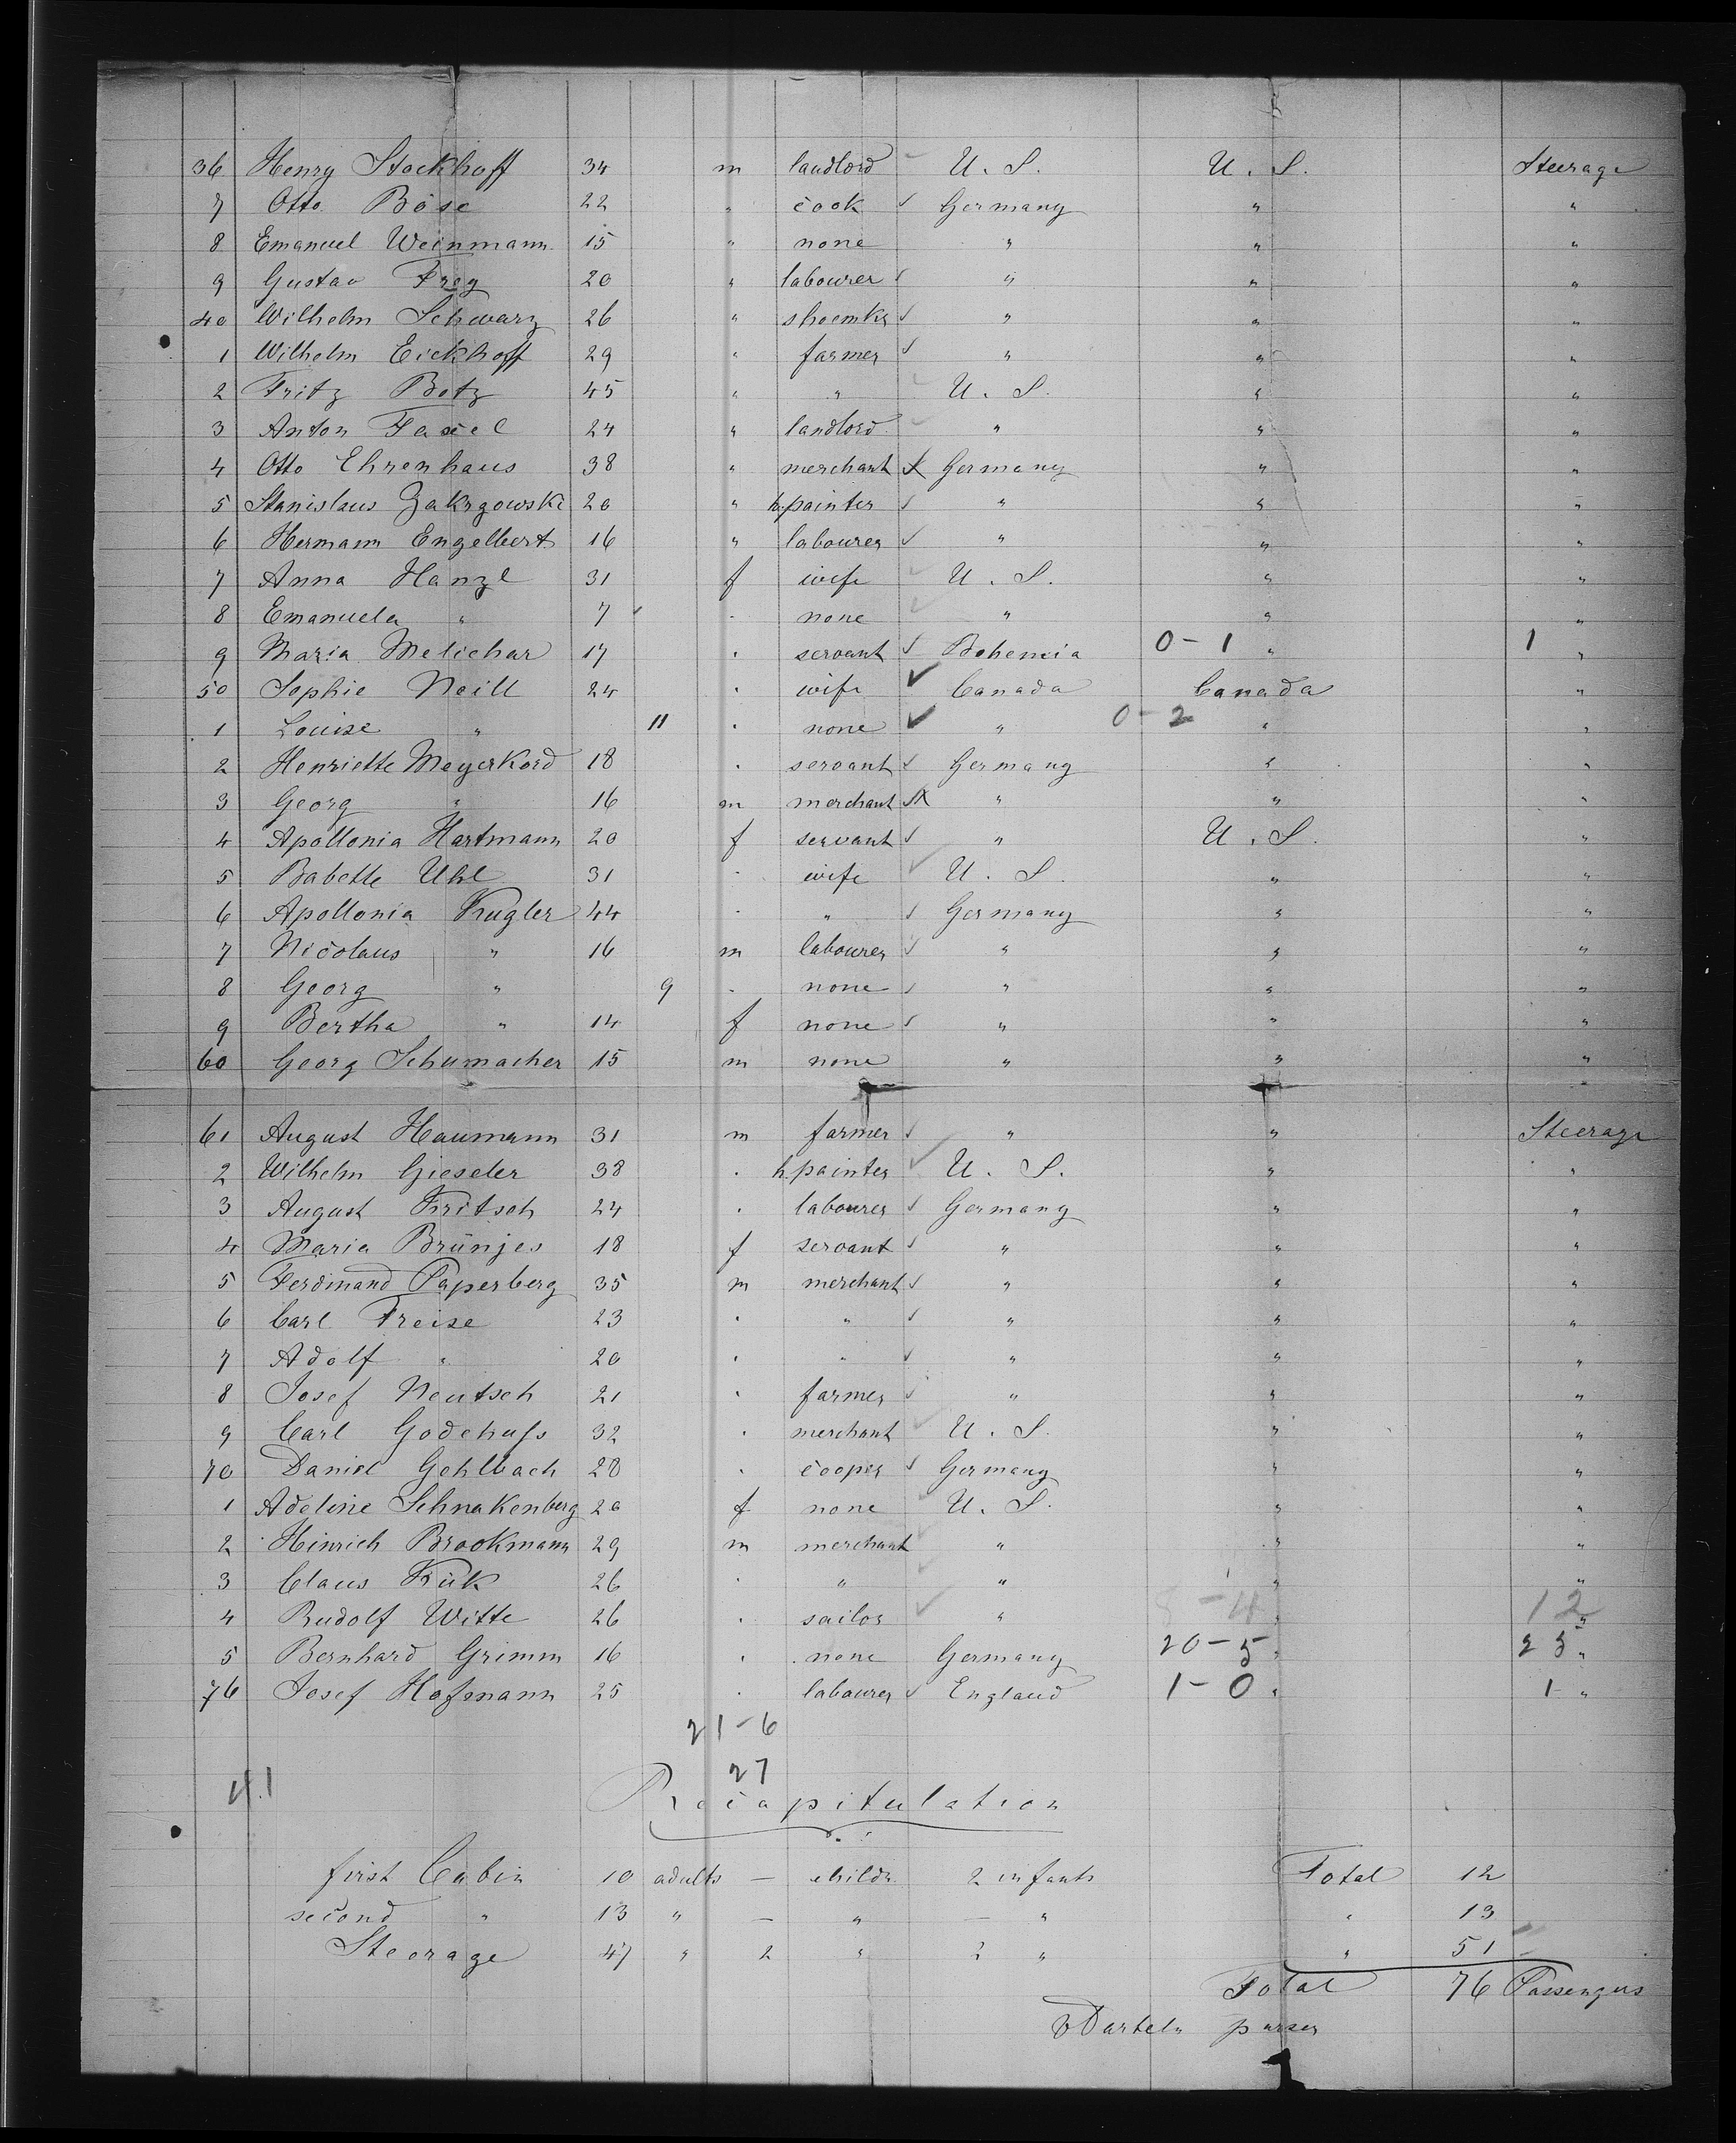 36 Henry Stockhoff 34 m landlord U. S. U. S. Steerage
7 Otto Böse 22 " cook Germany " "
8 Emanuel Weinmann 15 " none " " "
9 Gustav Frey 20 " labourer " " "
40 Wilhelm Schwarz 26 " shoemkr " " "
1 Wilhelm Eickhoff 29 " farmer " " "
2 Fritz Botz 45 " " U. S. " "
3 Anton 24 " landlord " " "
4 Otto Ehrenhaus 38 " merchant Germany " "
5 Stanislaus Zakrzowski 20 " h.painter " " "
6 Hermann Engelbert 16 " labourer " " "
7 Anna Hanzl 31 f wife U. S. " "
8 Emanuela " 7 " none " " "
9 Maria Melichar 17 " servant Bohemia 0-1 " 1 "
50 Sophie Neill 24 " wife Canada Canada "
1 Louise " 11 " none " 0-2 " "
2 Henriette Meyerkord 18 " servant Germany " "
3 Georg " 16 m merchant " " "
4 Apollonia Hartmann 20 f servant " U. S. "
5 Babette Uhl 31 " wife U. S. " "
6 Apollonia Kugler 44 " " Germany " "
7 Nicolaus " 16 m labourer " " "
8 Georg " 9 " none " " "
9 Bertha " 14 f none " " "
60 Georg Schumacher 15 m none " " "
61 August Haumann 31 m farmer " " Steerage
2 Wilhelm Gieseler 38 " h.painter U. S. " "
3 August Kritsch 24 " labourer Germany " "
4 Maria Brünjes 18 f servant " " "
5 Ferdinand Paperberg 35 m merchant " " "
6 Carl Freise 23 " " " " "
7 Adolf " 20 " " " " "
8 Josef Neutsch 21 " farmer " " "
9 Carl Godehuſs 32 " merchant U. S. " "
70 Daniel Gehlbach 28 " cooper Germany " "
1 Adeline Schnakenberg 20 f none U. S. " "
2 Hinrich Brookmann 29 m merchant " " "
3 Claus Kük 26 " " " " "
4 Rudolf Witte 26 " sailor " 8-4 " 12 "
5 Bernhard Grimm 16 " none Germany 20-5 " 25 "
76 Josef Hofmann 25 " labourer England 1-0 " 1 "
21-6
27
Recapitulation
first Cabin 10 adults — childn 2 infants Total 12
second " 13 " — " — " " 13
Steerage 47 " 2 " 2 " " 51
Total 76 Passengers
purser